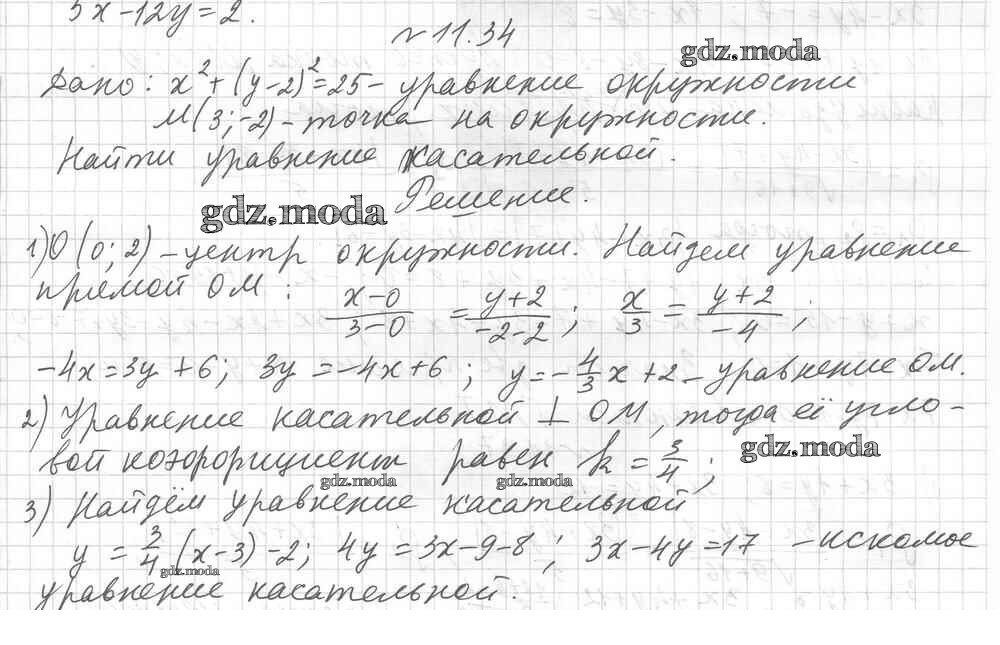 5x-12y=2.
№11.34
gdz.moda
Дано: x²+(y-2)²=25- уравнение окружности
M(3;-2)-точка на окружности.
Найти уравнение касательной.
Решение.
gdz.moda
1) O(0;2)-центр окружности. Найдем уравнение
прямой OM: (x-0)/(3-0) = (y+2)/(-2-2); x/3 = (y+2)/(-4);
-4x=3y+6; 3y=-4x+6; y=-4/3x+2-уравнение OM.
2) Уравнение касательной ⊥ OM, тогда её угло-
gdz.moda
вой коэффициент равен k=3/4;
gdz.moda gdz.moda
3) Найдём уравнение касательной
y=3/4(x-3)-2; 4y=3x-9-8; 3x-4y=17 -искомое
gdz.moda
уравнение касательной.